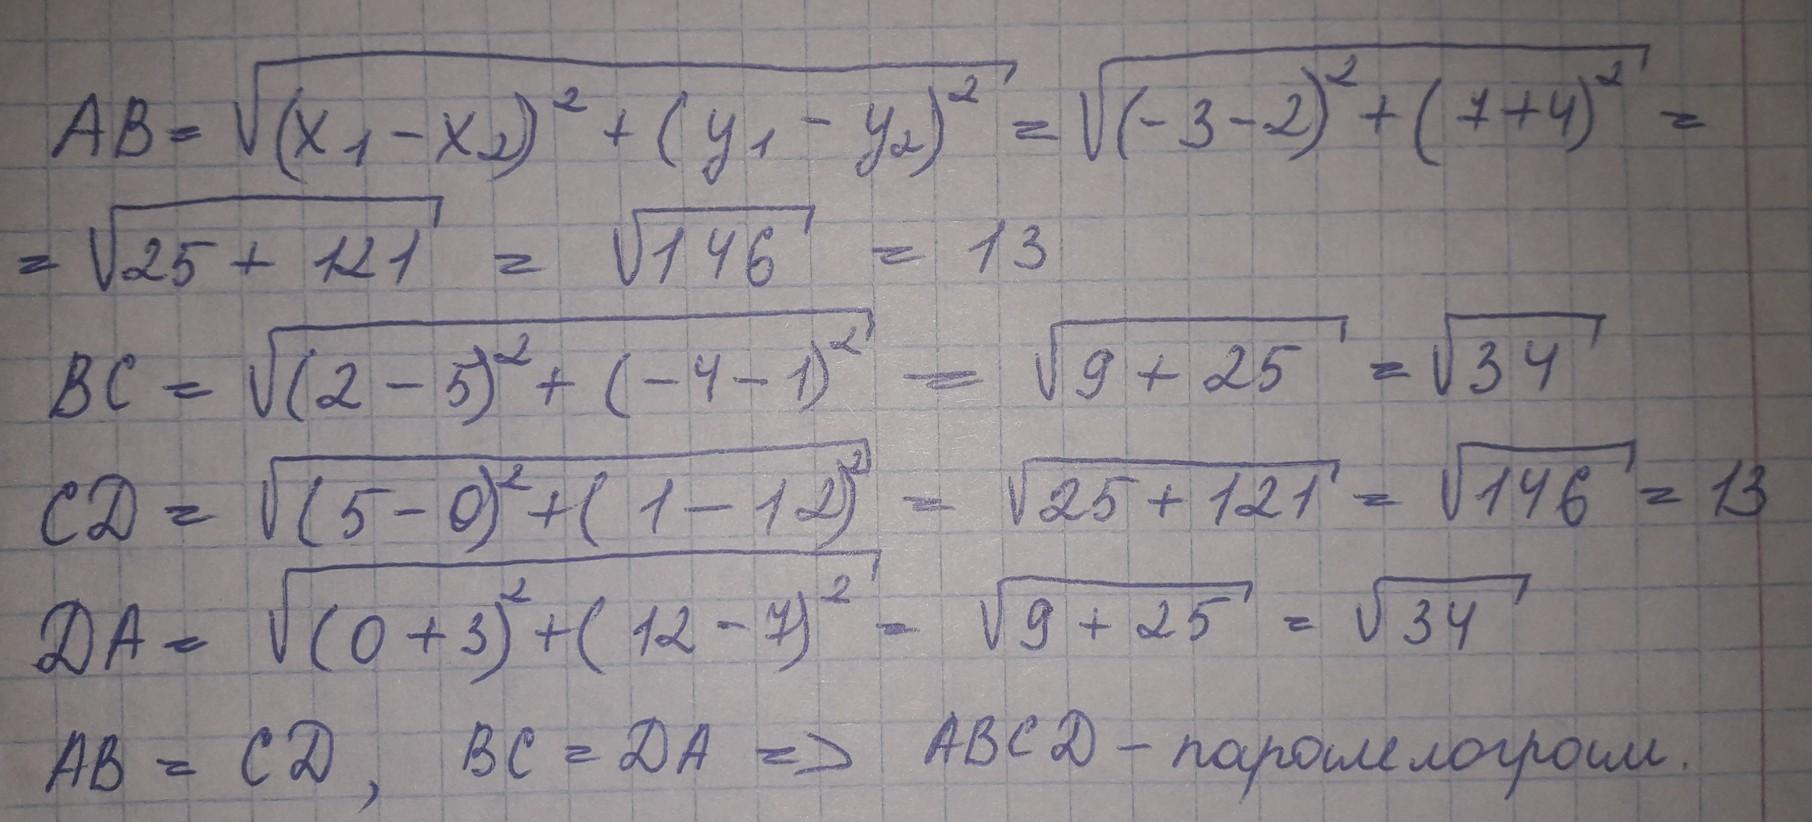 AB = √(x₁ - x₂)² + (y₁ - y₂)² = √(-3-2)² + (7+4)² =
= √25 + 121 = √146 = 13
BC = √(2 - 5)² + (-4-1)² = √9 + 25 = √34
CD = √(5-0)² + (1-12)² = √25 + 121 = √146 = 13
DA = √(0+3)² + (12-7)² = √9 + 25 = √34
AB = CD, BC = DA => ABCD - паралелограм.